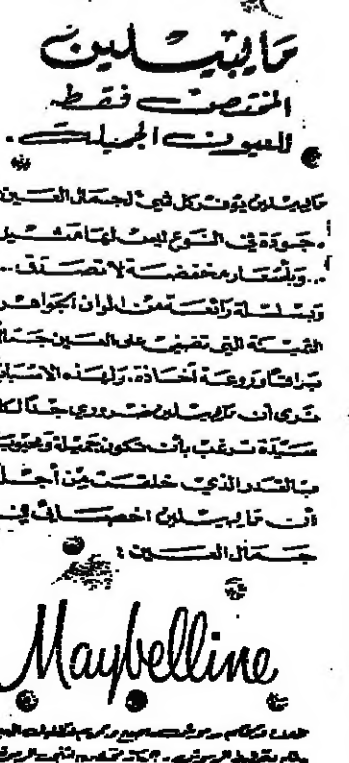 مايبيلين
المختصون فقط
للعيون الجميلة.
مايبيلين يوفر كل شيء لجمال العين
جودة في النوع ليس لها مثيل
.. وبأسعار مخفضة لا تصدق ..
وبسلسلة رائعة من الوان الجواهر
الثمينة التي تضفي على العين جمالا
براقا وروعة أخاذة. ولهذه الاسباب
نرى أن مايبيلين ضروري جدا لكل
سيدة ترغب بأن تكون جميلة ومحبوبة
بالقدر الذي خلقت من أجله
أن مايبيلين اخصائي في
جمال العين :
Maybelline